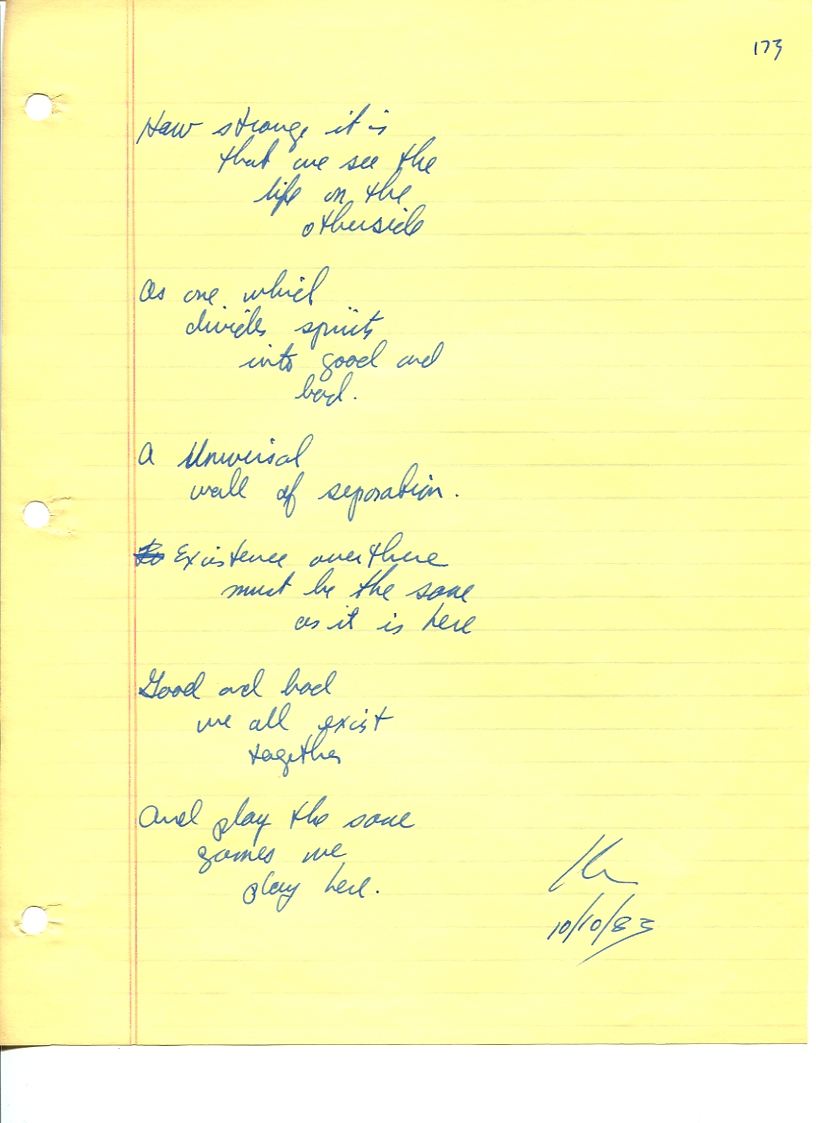 173
How strange it is
that we see the
life on the
otherside
As one which
divides spirits
into good and
bad.
A Universal
wall of separation.
Existence over there
must be the same
as it is here
Good and bad
we all exist
together
And play the same
games we
play here.
10/10/83